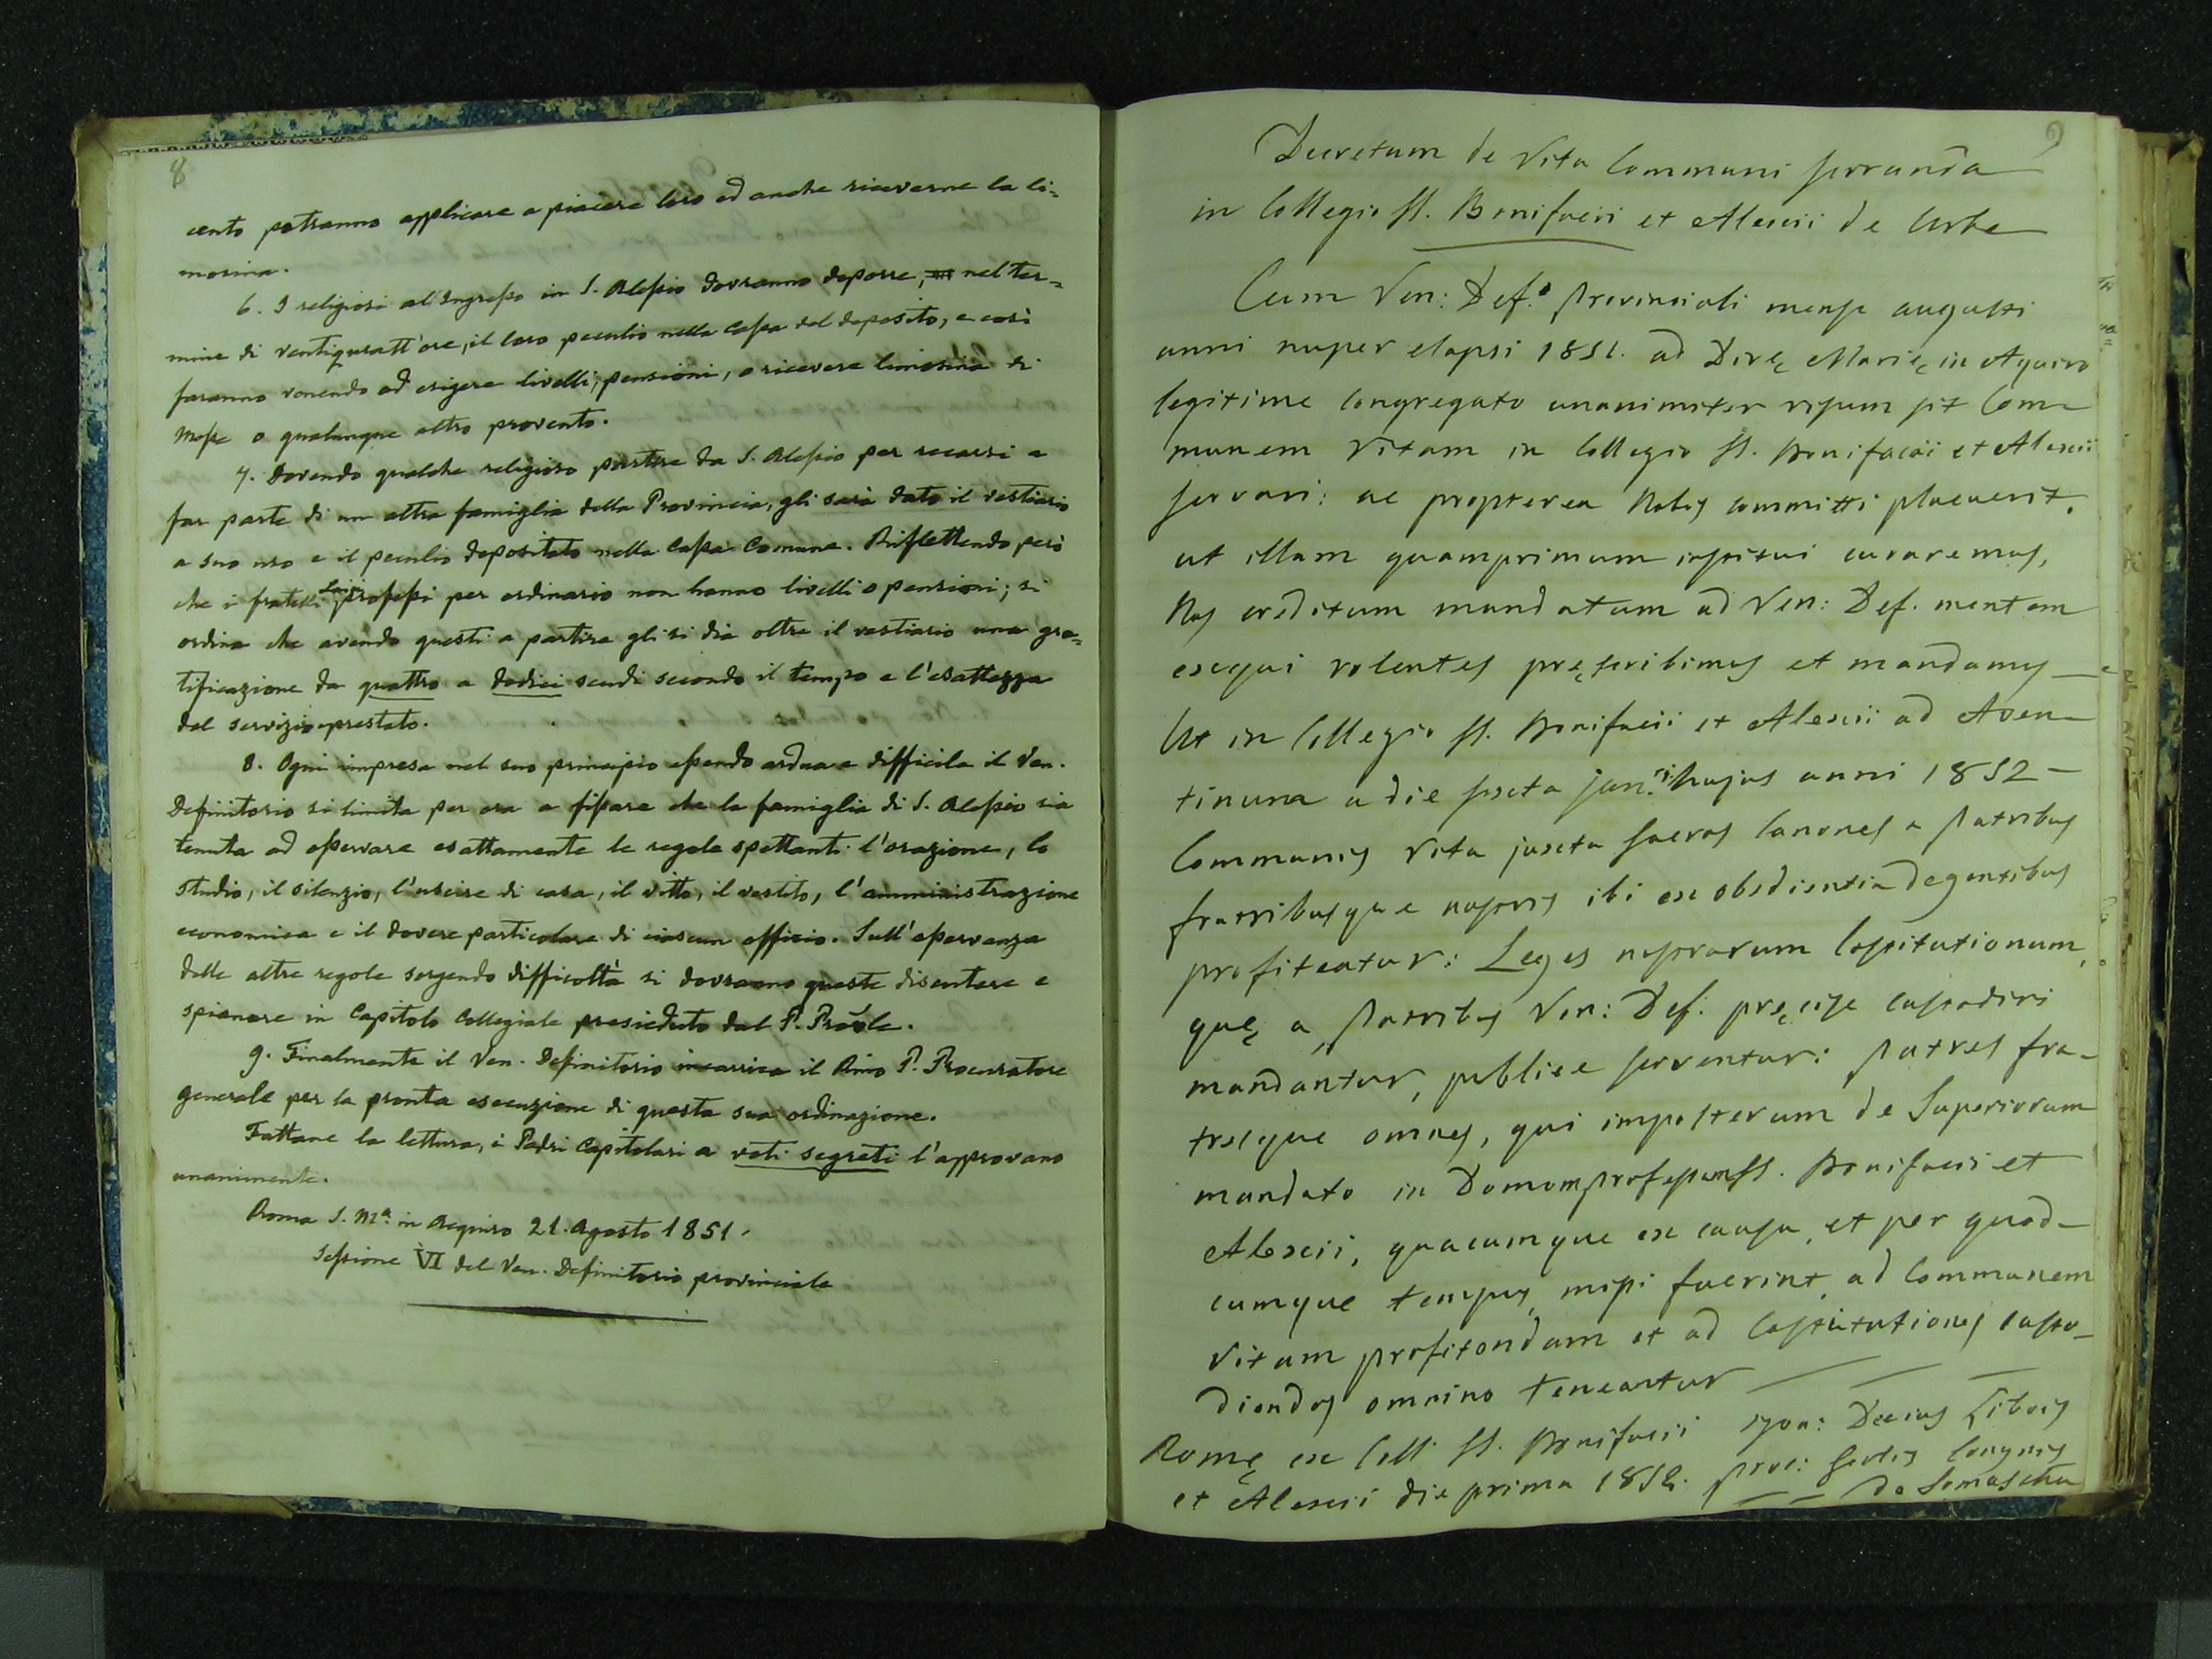 8
cento potranno applicare a piacere loro ed anche riceverne la li=
mosina.
6. I religiosi all'ingresso in S. Alessio dovranno deporre, nel ter=
mine di ventiquatt'ore, il loro peculio nella Cassa del deposito, e così
faranno venendo ad esigere livelli, pensioni, o ricevere limosina di
Messe o qualunque altro provento.
7. Dovendo qualche religioso partire da S. Alessio per recarsi a
far parte di un altra famiglia della Provincia, gli sarà dato il vestiario
a suo uso e il peculio depositato nella Cassa Comune. Riflettendo però
che i fratelli Laici professi per ordinario non hanno livelli o pensioni; si
ordina che avendo questi a partire gli si dia oltre il vestiario una gra=
tificazione da quattro a dodici scudi secondo il tempo e l'esattezza
del servizio prestato.
8. Ogni impresa nel suo principio essendo ardua e difficile il Ven.
Definitorio si limita per ora a fissare che la famiglia di S. Alessio sia
tenuta ad osservare esattamente le regole spettanti l'orazione, lo
studio, il silenzio, l'uscire di casa, il vitto, il vestito, l'amministrazione
economica e il dovere particolare di ciascun officio. Sull'osservanza
delle altre regole sorgendo difficoltà si dovranno queste discutere e
spianare in Capitolo Collegiale presieduto dal P. Prõvle.
9. Finalmente il Ven. Definitorio incarica il Rmo P. Procuratore
generale per la pronta esecuzione di questa sua ordinazione.
Fattane la lettura, i Padri Capitolari a voti segreti l'approvano
unanimente.
Roma S. Mª. in Aquiro 21. Agosto 1851.
Sessione VI del Ven. Definitorio provinciale
9
Decretum de Vita Communi servanda
in Collegio SS. Bonifacii et Alexii de Urbe
Cum Ven: Def.º Provinciali mense augusti
anni nuper elapsi 1851. ad Divę Marię in Aquiro
legitime congregato unanimiter visum sit Com-
munem Vitam in Collegio SS. Bonifacii et Alexii
servari: ac propterea Nobis committi placuerit,
ut illam quamprimum institui curaremus,
Nos creditum mandatum ad Ven: Def. mentem
exequi volentes pręscribimus et mandamus
Ut in Collegio SS. Bonifacii et Alexii ad Aven-
tinum a die sexta Jan.ri hujus anni 1852 -
Communis Vita juxta sacros Canones a Patribus
fratribusque nostris ibi ex obedientia degentibus
profiteatur: Leges nostrarum Constitutionum,
quę a Patribus Ven: Def. pręcise custodiri
mandantur, publice serventur: Patres fra-
tresque omnes, qui imposterum de Superiorum
mandato in Domum professam SS. Bonifacii et
Alexii, quacumque ex causa, et per quod-
cumque tempus, missi fuerint, ad Communem
Vitam profitendam et ad Constitutiones custo-
diendas omnino teneantur
Romę ex Coll. SS. Bonifacii Decius Libois
et Alexii die prima 1852. Proc: Gnlis Congnis
de Somascha